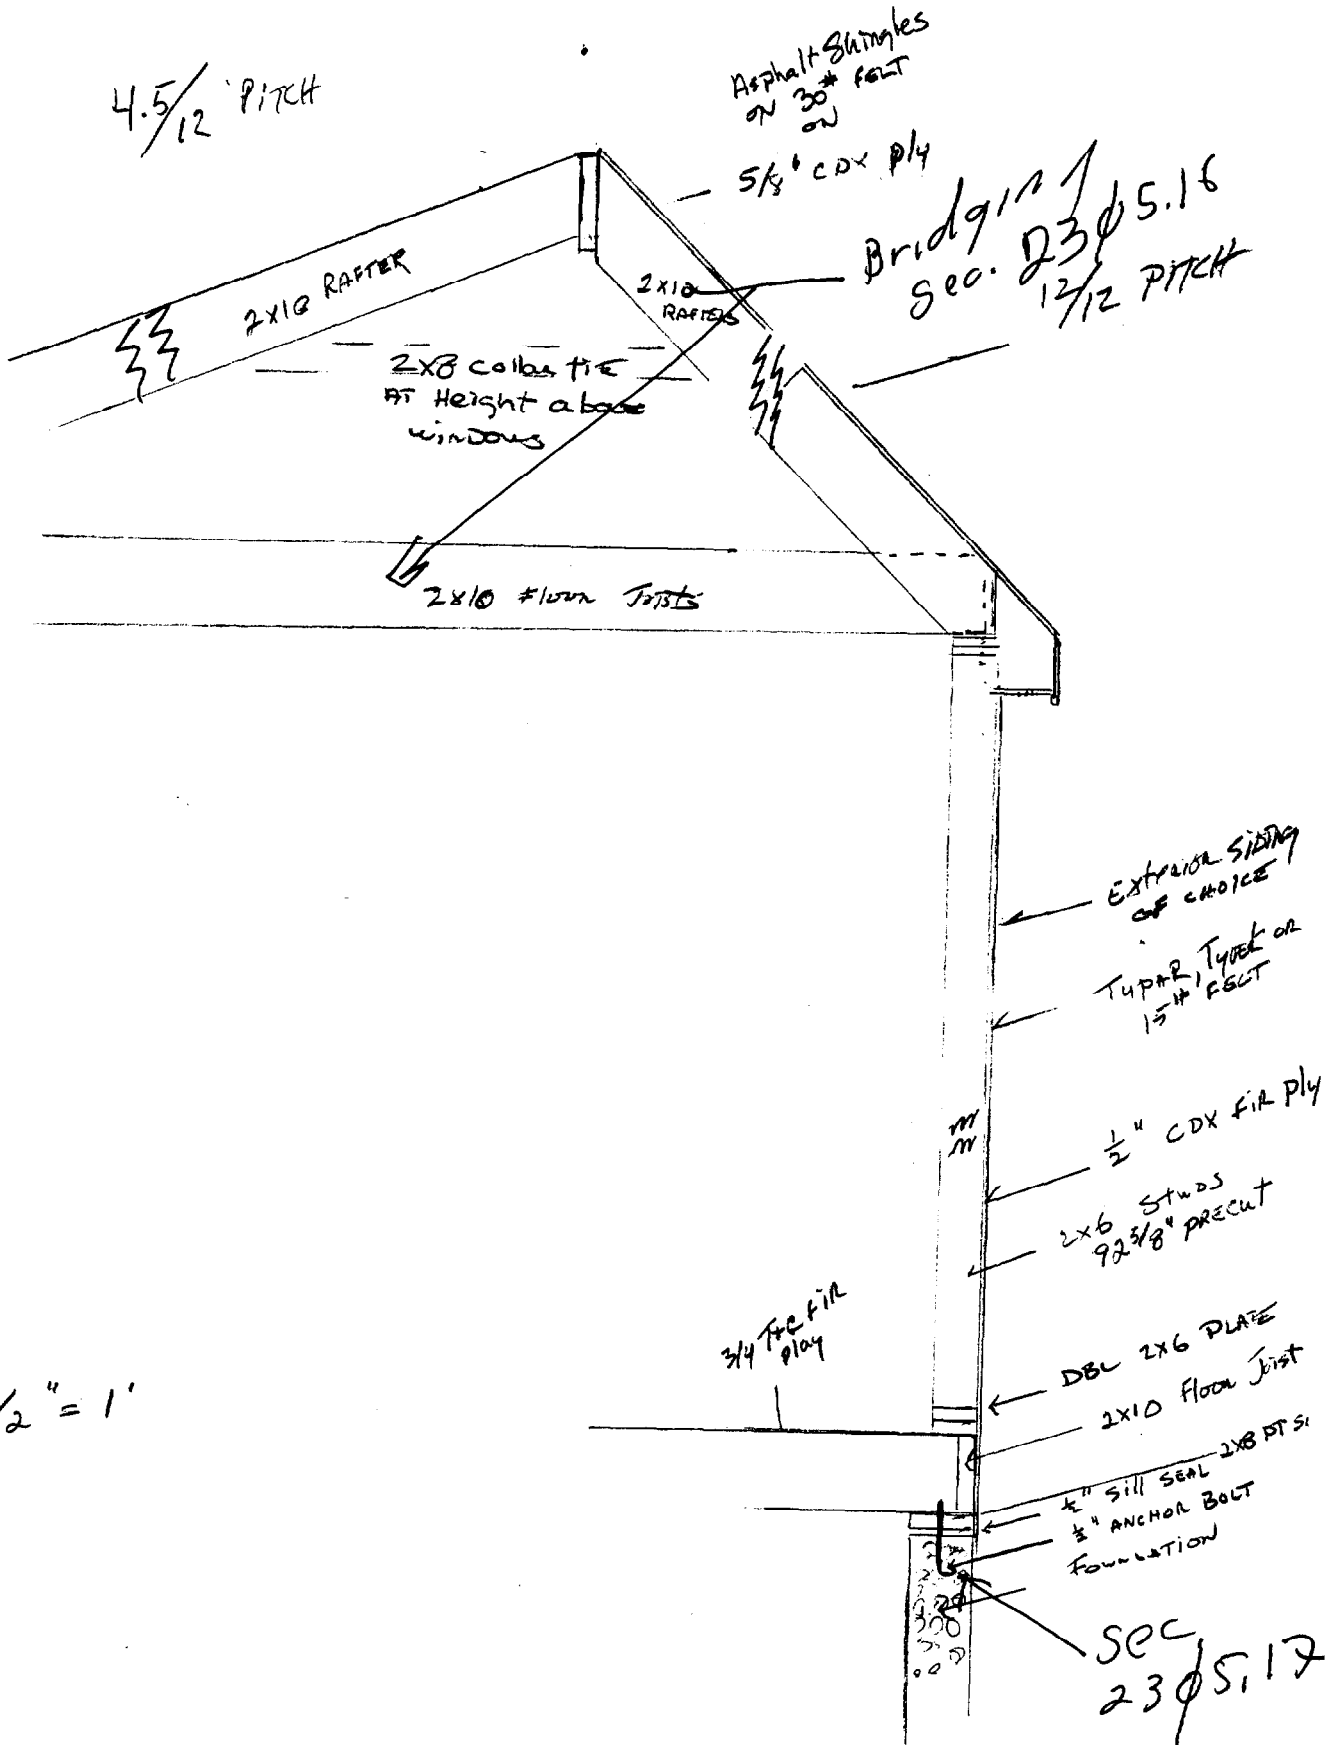 4.5/12 PITCH
Asphalt Shingles
ON 30# FELT
ON
5/8" CDX Ply
Bridging
Sec. 2305.16
12/12 PITCH
2X10 RAFTER
2X10
RAFTERS
2X8 collar tie
AT Height above
windows
2X10 Floor Joists
Exterior SIDING
OF CHOICE
TYPAR, Tyvek OR
15# FELT
1/2" CDX FIR Ply
2X6 Studs
92 5/8" PRECUT
3/4 T+G FIR
play
DBL 2X6 PLATE
2X10 Floor Joist
2X8 PT Si
/2" = 1'
1/2" Sill SEAL
1/2" ANCHOR BOLT
FOUNDATION
Sec
2305.17